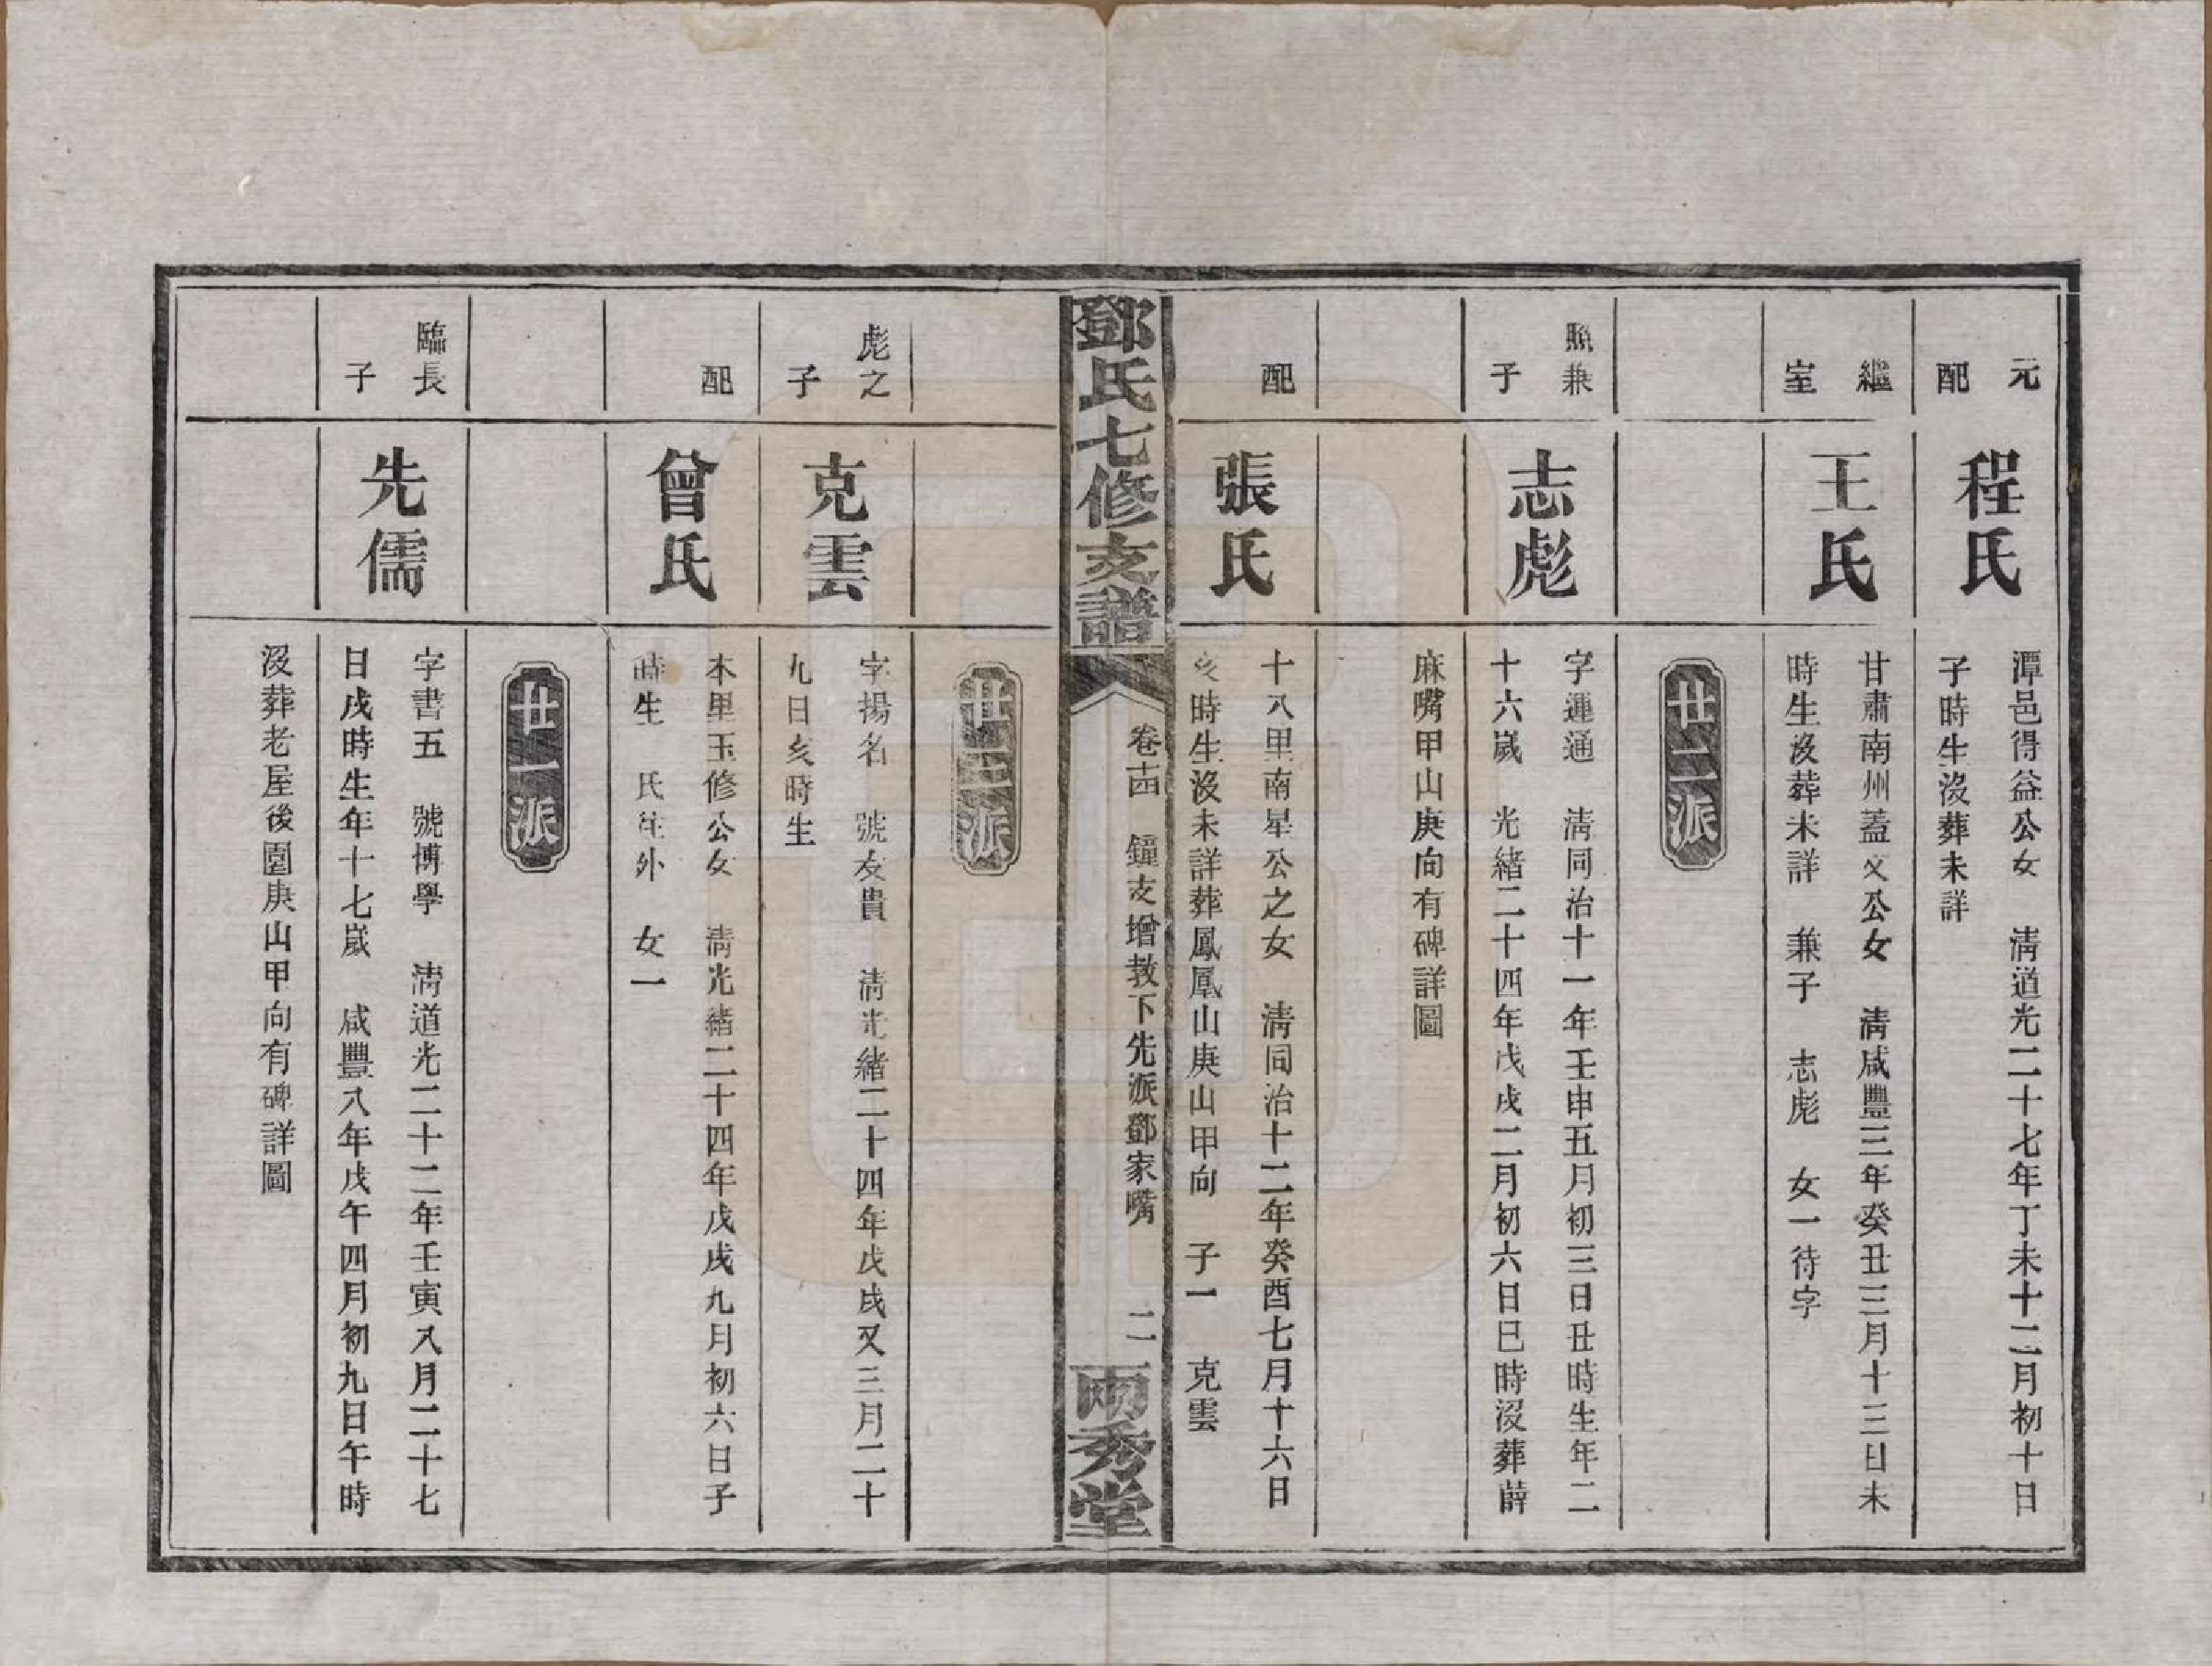 元配
程氏
潭邑得益公女　清道光二十七年丁未十二月初十日
子時生沒葬未詳
繼室
王氏
甘肅南州蓋文公女　清咸豐三年癸丑三月十三日未
時生沒葬未詳　兼子　志彪　女一待字
廿二派
照兼子
志彪
字運通　清同治十一年壬申五月初三日丑時生年二
十六歲　光緒二十四年戊戌二月初六日巳時沒葬薜
麻嘴甲山庚向有碑詳圖
配
張氏
十八里南星公之女　清同治十二年癸酉七月十六日
亥時生沒未詳葬鳳凰山庚山甲向　子一　克雲
鄧氏七修支譜
卷十四　鐘支增教下先派鄧家嘴　二
兩秀堂
廿三派
彪之子
克雲
字揚名　號友貴　清光緒二十四年戊戌又三月二十
九日亥時生
配
曾氏
本里玉修公女　清光緒二十四年戊戌九月初六日子
時生　氏往外　女一
廿一派
臨長子
先儒
字書五　號博學　清道光二十二年壬寅八月二十七
日戌時生年十七歲　咸豐八年戊午四月初九日午時
沒葬老屋後園庚山甲向有碑詳圖